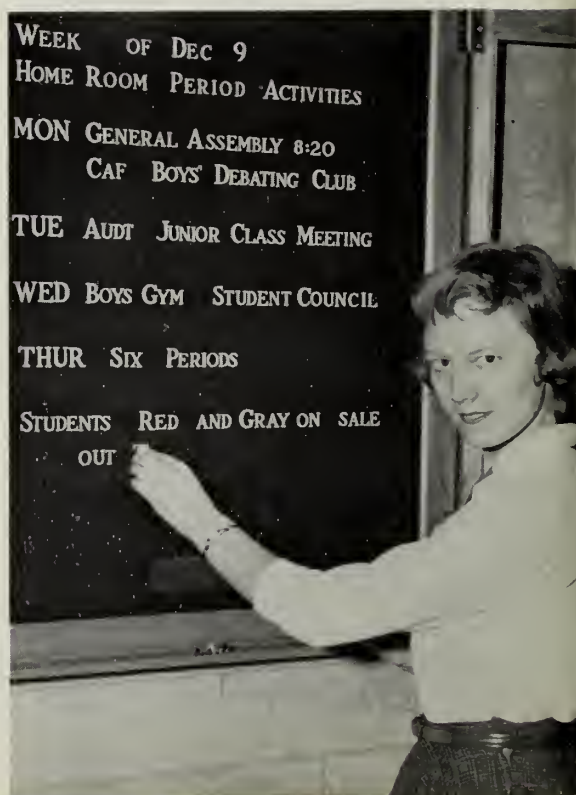 WEEK OF DEC 9
HOME ROOM PERIOD ACTIVITIES
MON GENERAL ASSEMBLY 8:20
CAF BOYS' DEBATING CLUB
TUE AUDT JUNIOR CLASS MEETING
WED BOYS GYM STUDENT COUNCIL
THUR SIX PERIODS
STUDENTS RED AND GRAY ON SALE
OUT